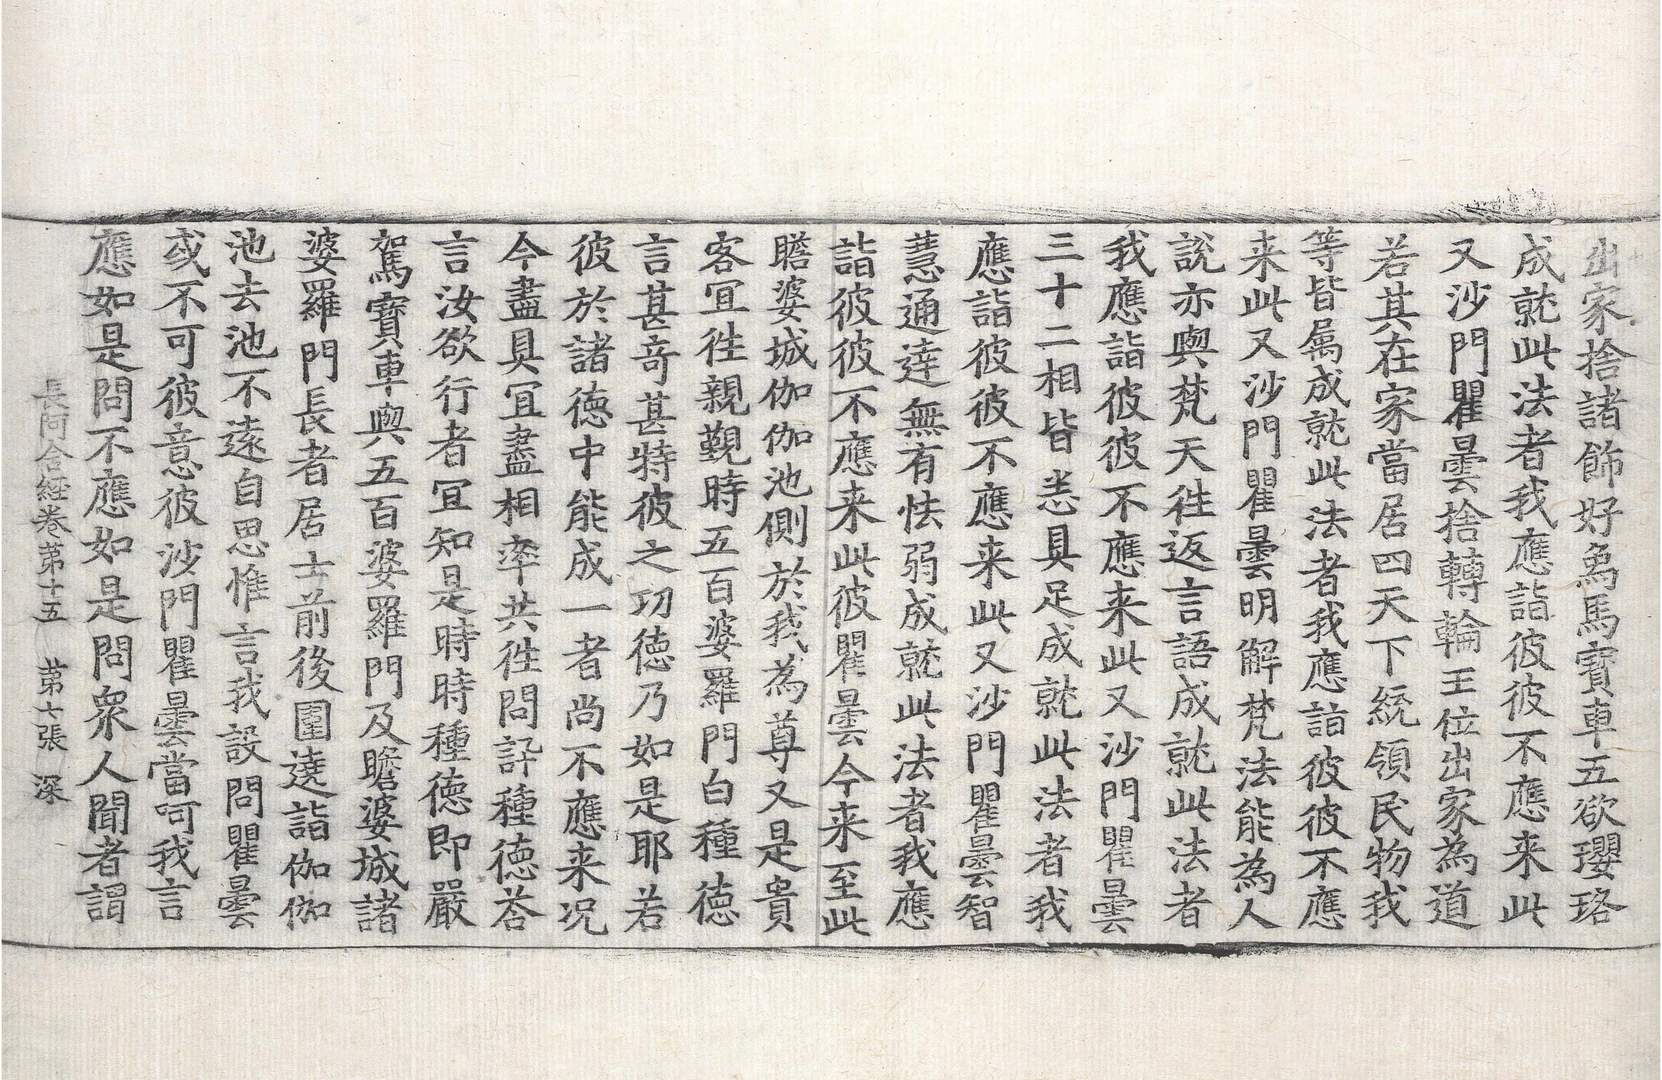 出家捨諸飾好象馬寶車五欲瓔珞
成就此法者我應詣彼彼不應来此
又沙門瞿曇捨轉輪王位出家為道
若其在家當居四天下統領民物我
等皆属成就此法者我應詣彼彼不應
来此又沙門瞿曇明解梵法能為人
說亦與梵天徃返言語成就此法者
我應詣彼彼不應来此又沙門瞿曇
三十二相皆悉具足成就此法者我
應詣彼彼不應来此又沙門瞿曇智
慧通達無有怯弱成就此法者我應
詣彼彼不應来此彼瞿曇今来至此
瞻婆城伽伽池側於我為尊又是貴
客冝徃親覲時五百婆羅門白種徳
言甚竒甚特彼之功徳乃如是耶若
彼於諸徳中能成一者尚不應来况
今盡具冝盡相率共徃問訊種徳荅
言汝欲行者冝知是時時種徳即嚴
駕寶車與五百婆羅門及瞻婆城諸
婆羅門長者居士前後圍遶詣伽伽
池去池不遠自思惟言我設問瞿曇
或不可彼意彼沙門瞿曇當呵我言
應如是問不應如是問衆人聞者謂
長阿含經卷第十五　第七張　深